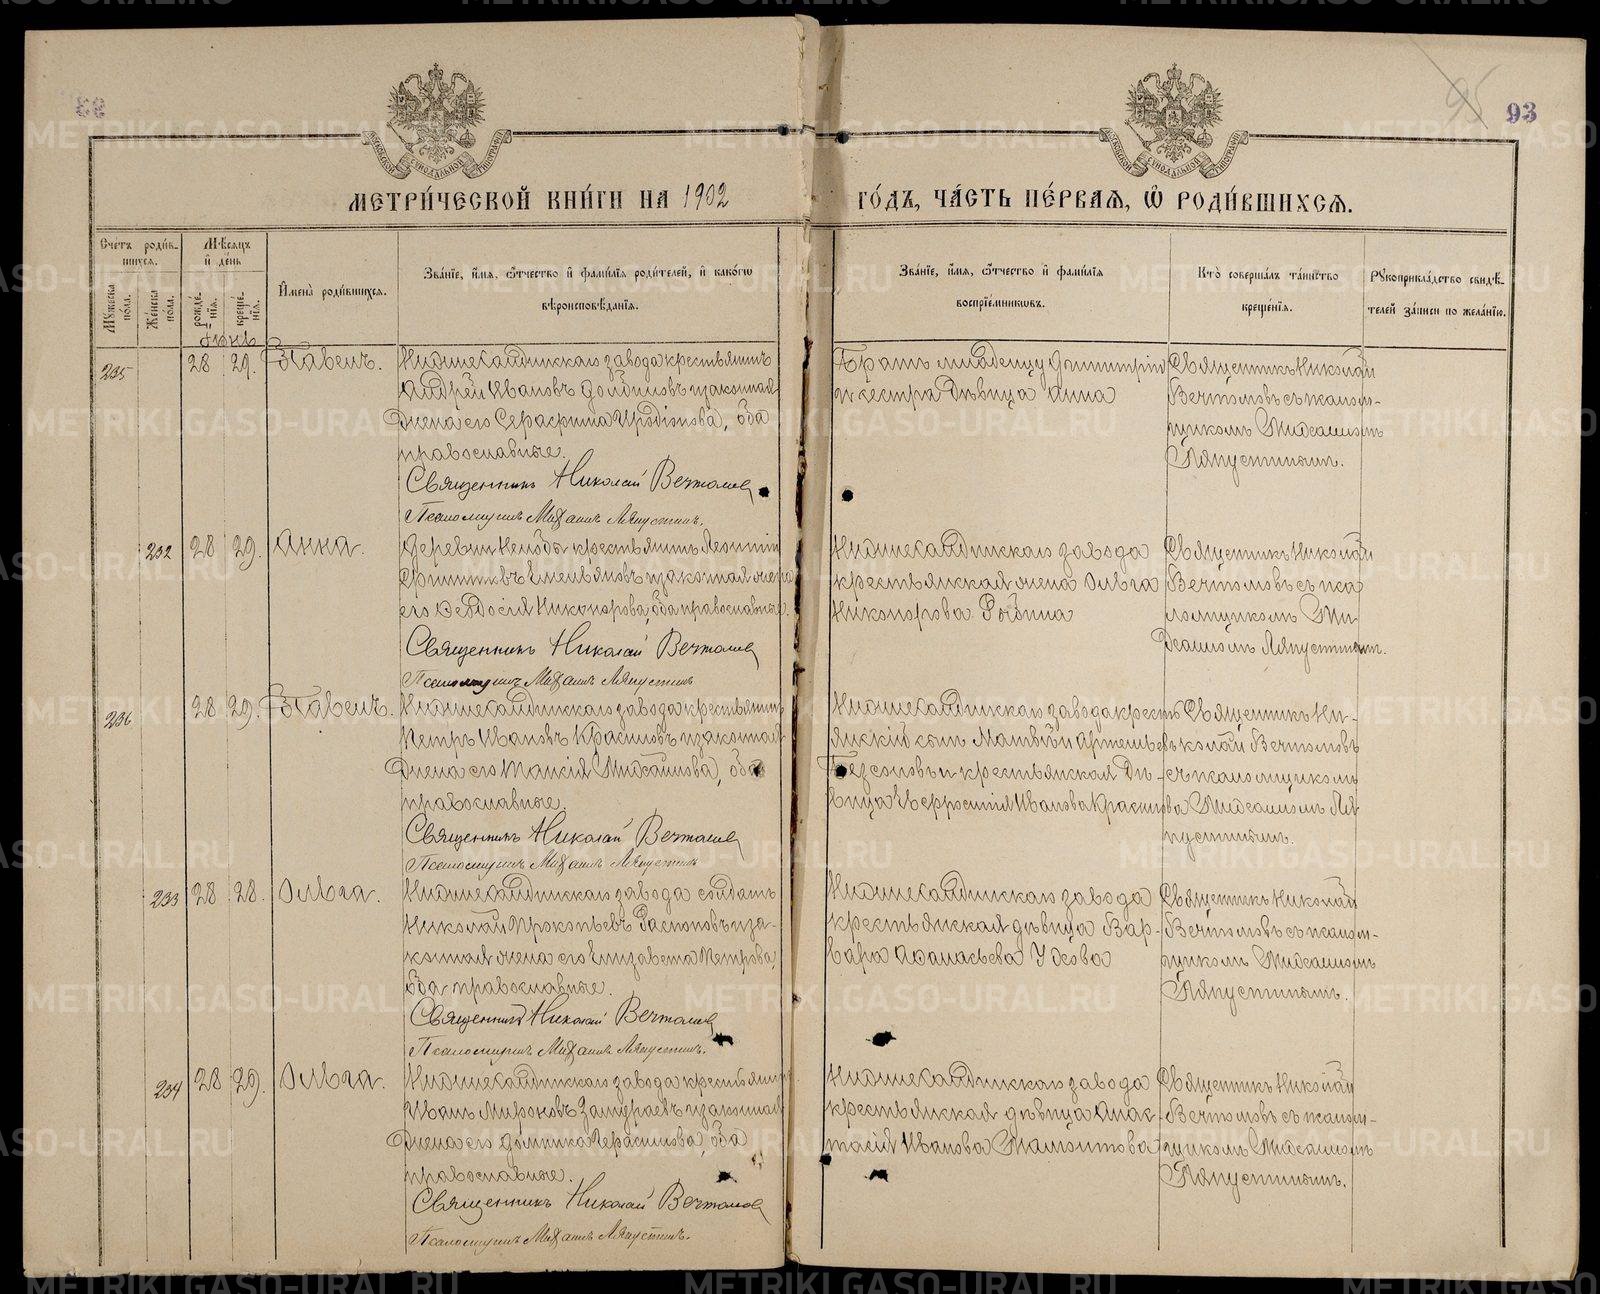 93
МЕТРИ́ЧЕСКОЙ КНИ́ГИ НА 1902
ГО́ДЪ, ЧА́СТЬ ПЕ́РВАѦ, Ѽ РОДИ́ВШИХСѦ.
Сче́тъ роди́в-
шихсѧ.
Мꙋ́жеска по́ла.
Же́нска по́ла.
Мѣ́сѧцъ
и҆ де́нь
рожде́нїѧ.
креще́нїѧ.
И҆мена̀ роди́вшихсѧ.
Зва́нїе, и҆́мѧ, ѻ҆́тчество и҆ фами́лїѧ роди́телей, и҆ како́гѡ
вѣроисповѣ́данїѧ.
Зва́нїе, и҆́мѧ, ѻ҆́тчество и҆ фами́лїѧ
воспрїе́мникѡвъ.
Кто̀ соверша́лъ та́инство
креще́нїѧ.
Рꙋкоприкла́дство свидѣ́-
телей за́писи по жела́нїю.
Іюнь
235 28 29. Павелъ.
Нижнесалдинскаго завода крестьянинъ
Андрей Ивановъ и законная
жена его Серафима Иродіонова, оба
православные.
Священникъ Николай Вечтомовъ
Псаломщикъ Михаилъ Ляпустинъ.
Братъ младенцу Димитрій
и сестра дѣвица Анна
Священникъ Николай
Вечтомовъ съ псалом-
щикомъ Михаиломъ
Ляпустинымъ.
232 28 29. Анна.
Деревни крестьянинъ Леонтій
и законная жена
его Ѳеодосія Никонорова, оба православные.
Священникъ Николай Вечтомовъ
Псаломщикъ Михаилъ Ляпустинъ
Нижнесалдинскаго завода
крестьянская жена Ольга
Никонорова
Священникъ Николай
Вечтомовъ съ пса
ломщикомъ Ми-
хаиломъ Ляпустинымъ.
236 28 29. Павелъ.
Нижнесалдинскаго завода крестьянинъ
Петръ Ивановъ Красиловъ и законная
жена его Таисія Михайлова, оба
православные.
Священникъ Николай Вечтомовъ
Псаломщикъ Михаилъ Ляпустинъ
Нижнесалдинскаго завода крестъ
янскій сынъ Матвѣй Артемьевъ
Безсоновъ и крестьянская дѣ-
вица Ивановна
Священникъ Ни-
колай Вечтомовъ
съ псаломщикомъ
Михаиломъ Ля
пустинымъ.
233 28 28. Ольга.
Нижнесалдинскаго завода солдатъ
Николай Прокопьевъ Распоповъ и за-
конная жена его Елизавета Петрова,
оба православные.
Священникъ Николай Вечтомовъ
Псаломщикъ Михаилъ Ляпустинъ.
Нижнесалдинскаго завода
крестьянская дѣвица Вар-
вара Аѳанасьева
Священникъ Николай
Вечтомовъ съ псалом-
щикомъ Михаиломъ
Ляпустинымъ.
234 28 29. Ольга.
Нижнесалдинскаго завода крестьянинъ
Иванъ Мироновъ Замураевъ и законная
жена его Домника Герасимова, оба
православные.
Священникъ Николай Вечтомовъ
Псаломщикъ Михаилъ Ляпустинъ.
Нижнесалдинскаго завода
крестьянская дѣвица Анас-
тасія Иванова Мамонтова
Священникъ Николай
Вечтомовъ съ псалом-
щикомъ Михаиломъ
Ляпустинымъ.
METRIKI.GASO-URAL.RU